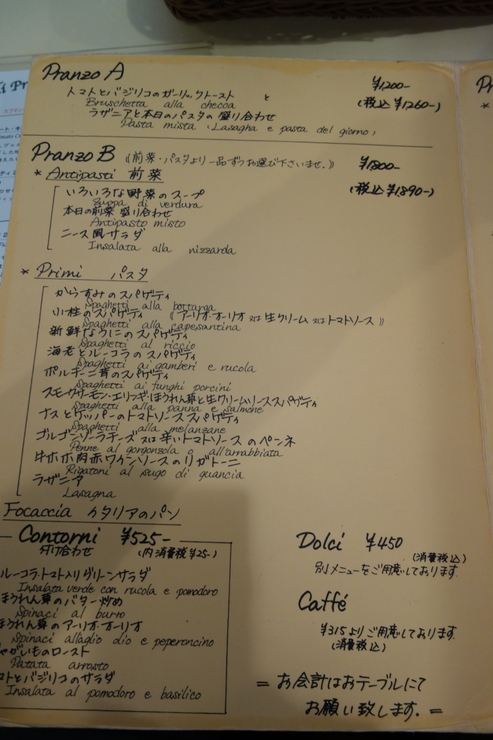 Pranzo A ¥1200-
トマトとバジリコのガーリックトースト と (税込 ¥1260-)
Bruschetta alla checca
ラザニアと本日のパスタの盛り合わせ
Pasta mista (Lasagna e pasta del giorno)
Pranzo B 《前菜・パスタより一品ずつお選び下さいませ。》 ¥1800-
* Antipasti 前菜 (税込 ¥1890-)
いろいろな野菜のスープ
Zuppa di verdura
本日の前菜 盛り合わせ
Antipasto misto
ニース風サラダ
Insalata alla nizzarda
* Primi パスタ
からすみのスパゲティ
Spaghetti alla bottarga
小柱のスパゲティ 《アーリオ・オーリオ 又は 生クリーム 又は トマトソース》
Spaghetti alla capesantina
新鮮なうにのスパゲティ
Spaghetti al riccio
海老とルーコラのスパゲティ
Spaghetti ai gamberi e rucola
ポルチーニ茸のスパゲティ
Spaghetti ai funghi porcini
スモークサーモン・エリンギ・ほうれん草と生クリームソーススパゲティ
Spaghetti alla panna e salmone
ナスとケッパーのトマトソーススパゲティ
Spaghetti alla melanzane
ゴルゴンゾーラチーズ 又は 辛いトマトソースのペンネ
Penne al gorgonzola o all'arrabbiata
牛ホホ肉赤ワインソースのリガトーニ
Rigatoni al sugo di guancia
ラザニア
Lasagna
Focaccia イタリアのパン
Contorni ¥525-
付け合わせ (内消費税 ¥25-)
ルーコラ・トマト入りグリーンサラダ
Insalata verde con rucola e pomodoro
ほうれん草のバター炒め
Spinaci al burro
ほうれん草のアーリオ・オーリオ
Spinaci all'aglio olio e peperoncino
じゃがいものロースト
Patata arrosto
トマトとバジリコのサラダ
Insalata al pomodoro e basilico
Dolci ¥450
(消費税込)
別メニューをご用意しております。
Caffé
¥315よりご用意しております。
(消費税込)
= お会計はおテーブルにて
お願い致します。 =